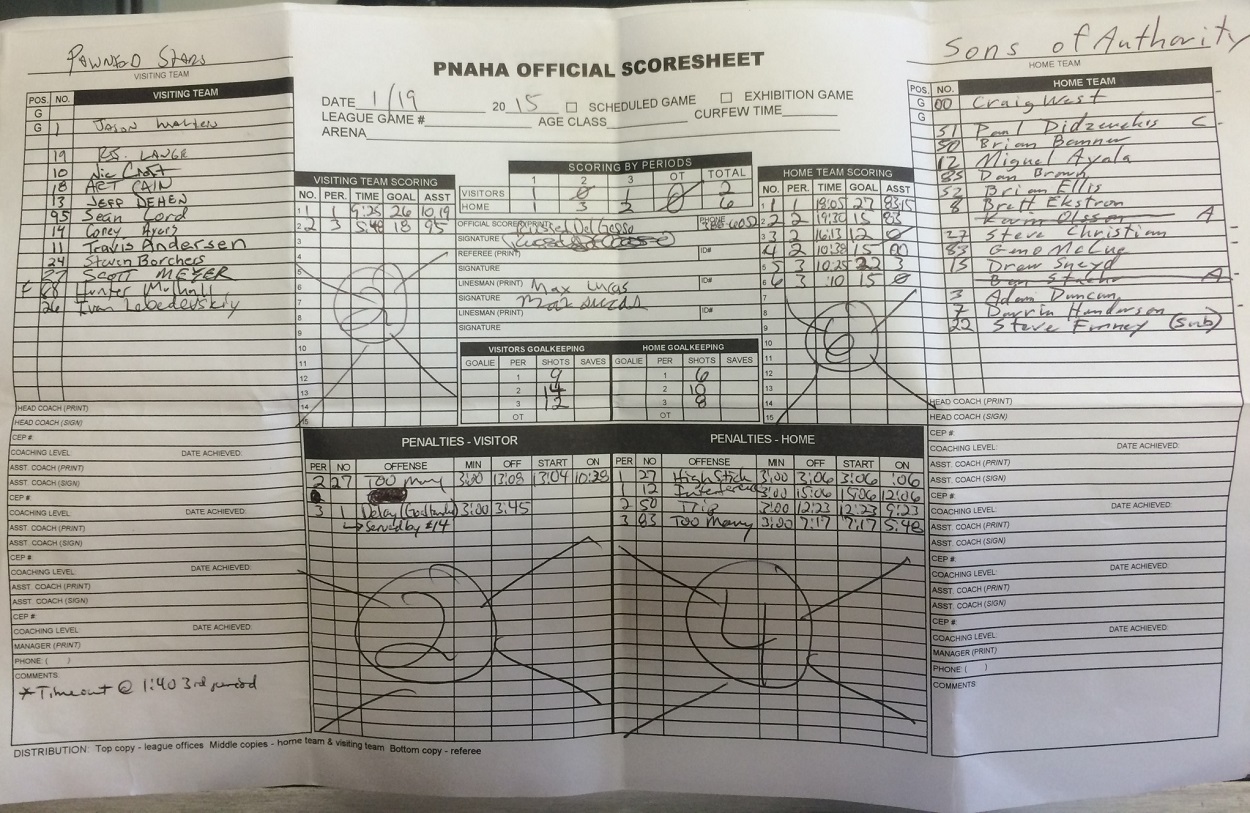 Pawned Stars
VISITING TEAM
Sons of Authority
HOME TEAM
PNAHA OFFICIAL SCORESHEET
DATE 1/19 2015 SCHEDULED GAME EXHIBITION GAME
LEAGUE GAME # AGE CLASS CURFEW TIME
ARENA
POS. NO. VISITING TEAM
G
G 1
19 R.S. LANGE
10
18 ART CAIN
13 JEFF DEHEN
95 Sean Lord
14 Corey Ayers
11 Travis Andersen
24 Steven Borchers
27 SCOTT MEYER
88 Hunter Mulhall
26 Ivan Lebedevskiy
HEAD COACH (PRINT)
HEAD COACH (SIGN)
CEP #
COACHING LEVEL: DATE ACHIEVED:
ASST. COACH (PRINT)
ASST. COACH (SIGN)
CEP #
COACHING LEVEL: DATE ACHIEVED:
ASST. COACH (PRINT)
ASST. COACH (SIGN)
CEP #
COACHING LEVEL: DATE ACHIEVED:
ASST. COACH (PRINT)
ASST. COACH (SIGN)
CEP #
COACHING LEVEL DATE ACHIEVED:
MANAGER (PRINT)
PHONE: ( )
COMMENTS
*Timeout @ 1:40 3rd period
VISITING TEAM SCORING
NO. PER. TIME GOAL ASST
1 1 9:25 26 10 19
2 3 5:48 18 95
3
4
5
6
7
8
9
10
11
12
13
14
15
2
SCORING BY PERIODS
1 2 3 OT TOTAL
VISITORS 1 0 1 0 2
HOME 1 3 2 0 6
OFFICIAL SCORER (PRINT) PHONE
SIGNATURE
REFEREE (PRINT) ID#
SIGNATURE
LINESMAN (PRINT) Max Lucas ID#
SIGNATURE Max Lucas
LINESMAN (PRINT) ID#
SIGNATURE
VISITORS GOALKEEPING HOME GOALKEEPING
GOALIE PER SHOTS SAVES GOALIE PER SHOTS SAVES
1 9 1 6
2 14 2 10
3 12 3 8
OT OT
HOME TEAM SCORING
NO. PER. TIME GOAL ASST
1 1 18:05 27 83 15
2 2 19:30 15 83
3 2 16:13 12 0
4 2 10:38 15 00
5 3 10:25 22 3
6 3 :10 15 0
7
8
9
10
11
12
13
14
15
6
POS. NO. HOME TEAM
G 00 Craig West
G
51 Paul C
50 Brian
12 Miguel Ayala
85 Dan Brown
52 Brian Ellis
8 Brett Ekstrom
Kevin Olsson A
27 Steve Christian
83 Geno McCue
15 Drew Sneyd
A
3 Adam Duncan
7 Darrin Henderson
22 Steve Finney (sub)
HEAD COACH (PRINT)
HEAD COACH (SIGN)
CEP #
COACHING LEVEL: DATE ACHIEVED:
ASST. COACH (PRINT)
ASST. COACH (SIGN)
CEP #
COACHING LEVEL: DATE ACHIEVED:
ASST. COACH (PRINT)
ASST. COACH (SIGN)
CEP #
COACHING LEVEL: DATE ACHIEVED:
ASST. COACH (PRINT)
ASST. COACH (SIGN)
CEP #
COACHING LEVEL: DATE ACHIEVED:
MANAGER (PRINT)
PHONE: ( )
COMMENTS
PENALTIES - VISITOR
PER NO OFFENSE MIN OFF START ON
2 27 Too Many 3:00 13:08 13:04 10:38
3 1 Delay 3:00 3:45
Served by #14
2
PENALTIES - HOME
PER NO. OFFENSE MIN OFF START ON
1 27 High Stick 3:00 3:06 3:06 :06
1 12 Interference 3:00 15:06 15:06 12:06
2 50 Trip 3:00 12:23 12:23 9:23
3 83 Too Many 3:00 7:17 7:17 5:48
4
DISTRIBUTION: Top copy - league offices Middle copies - home team & visiting team Bottom copy - referee